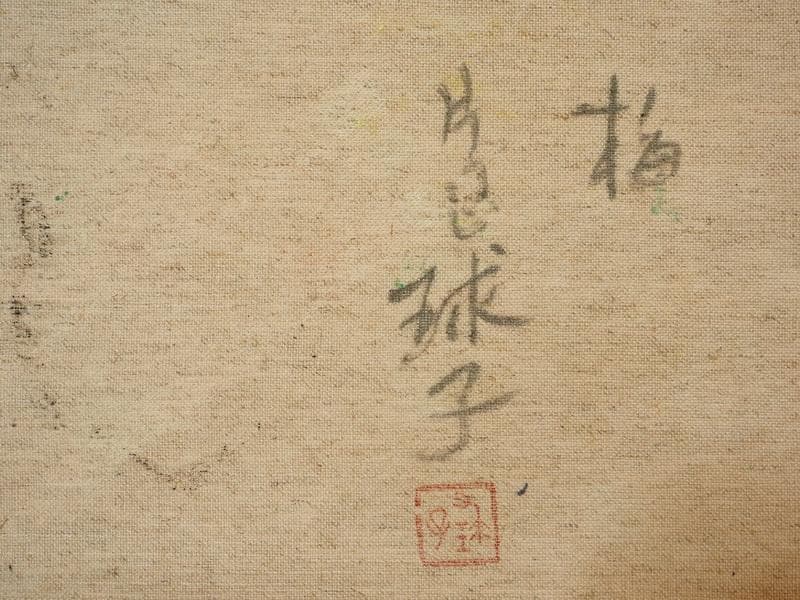 梅
片岡球子
球子